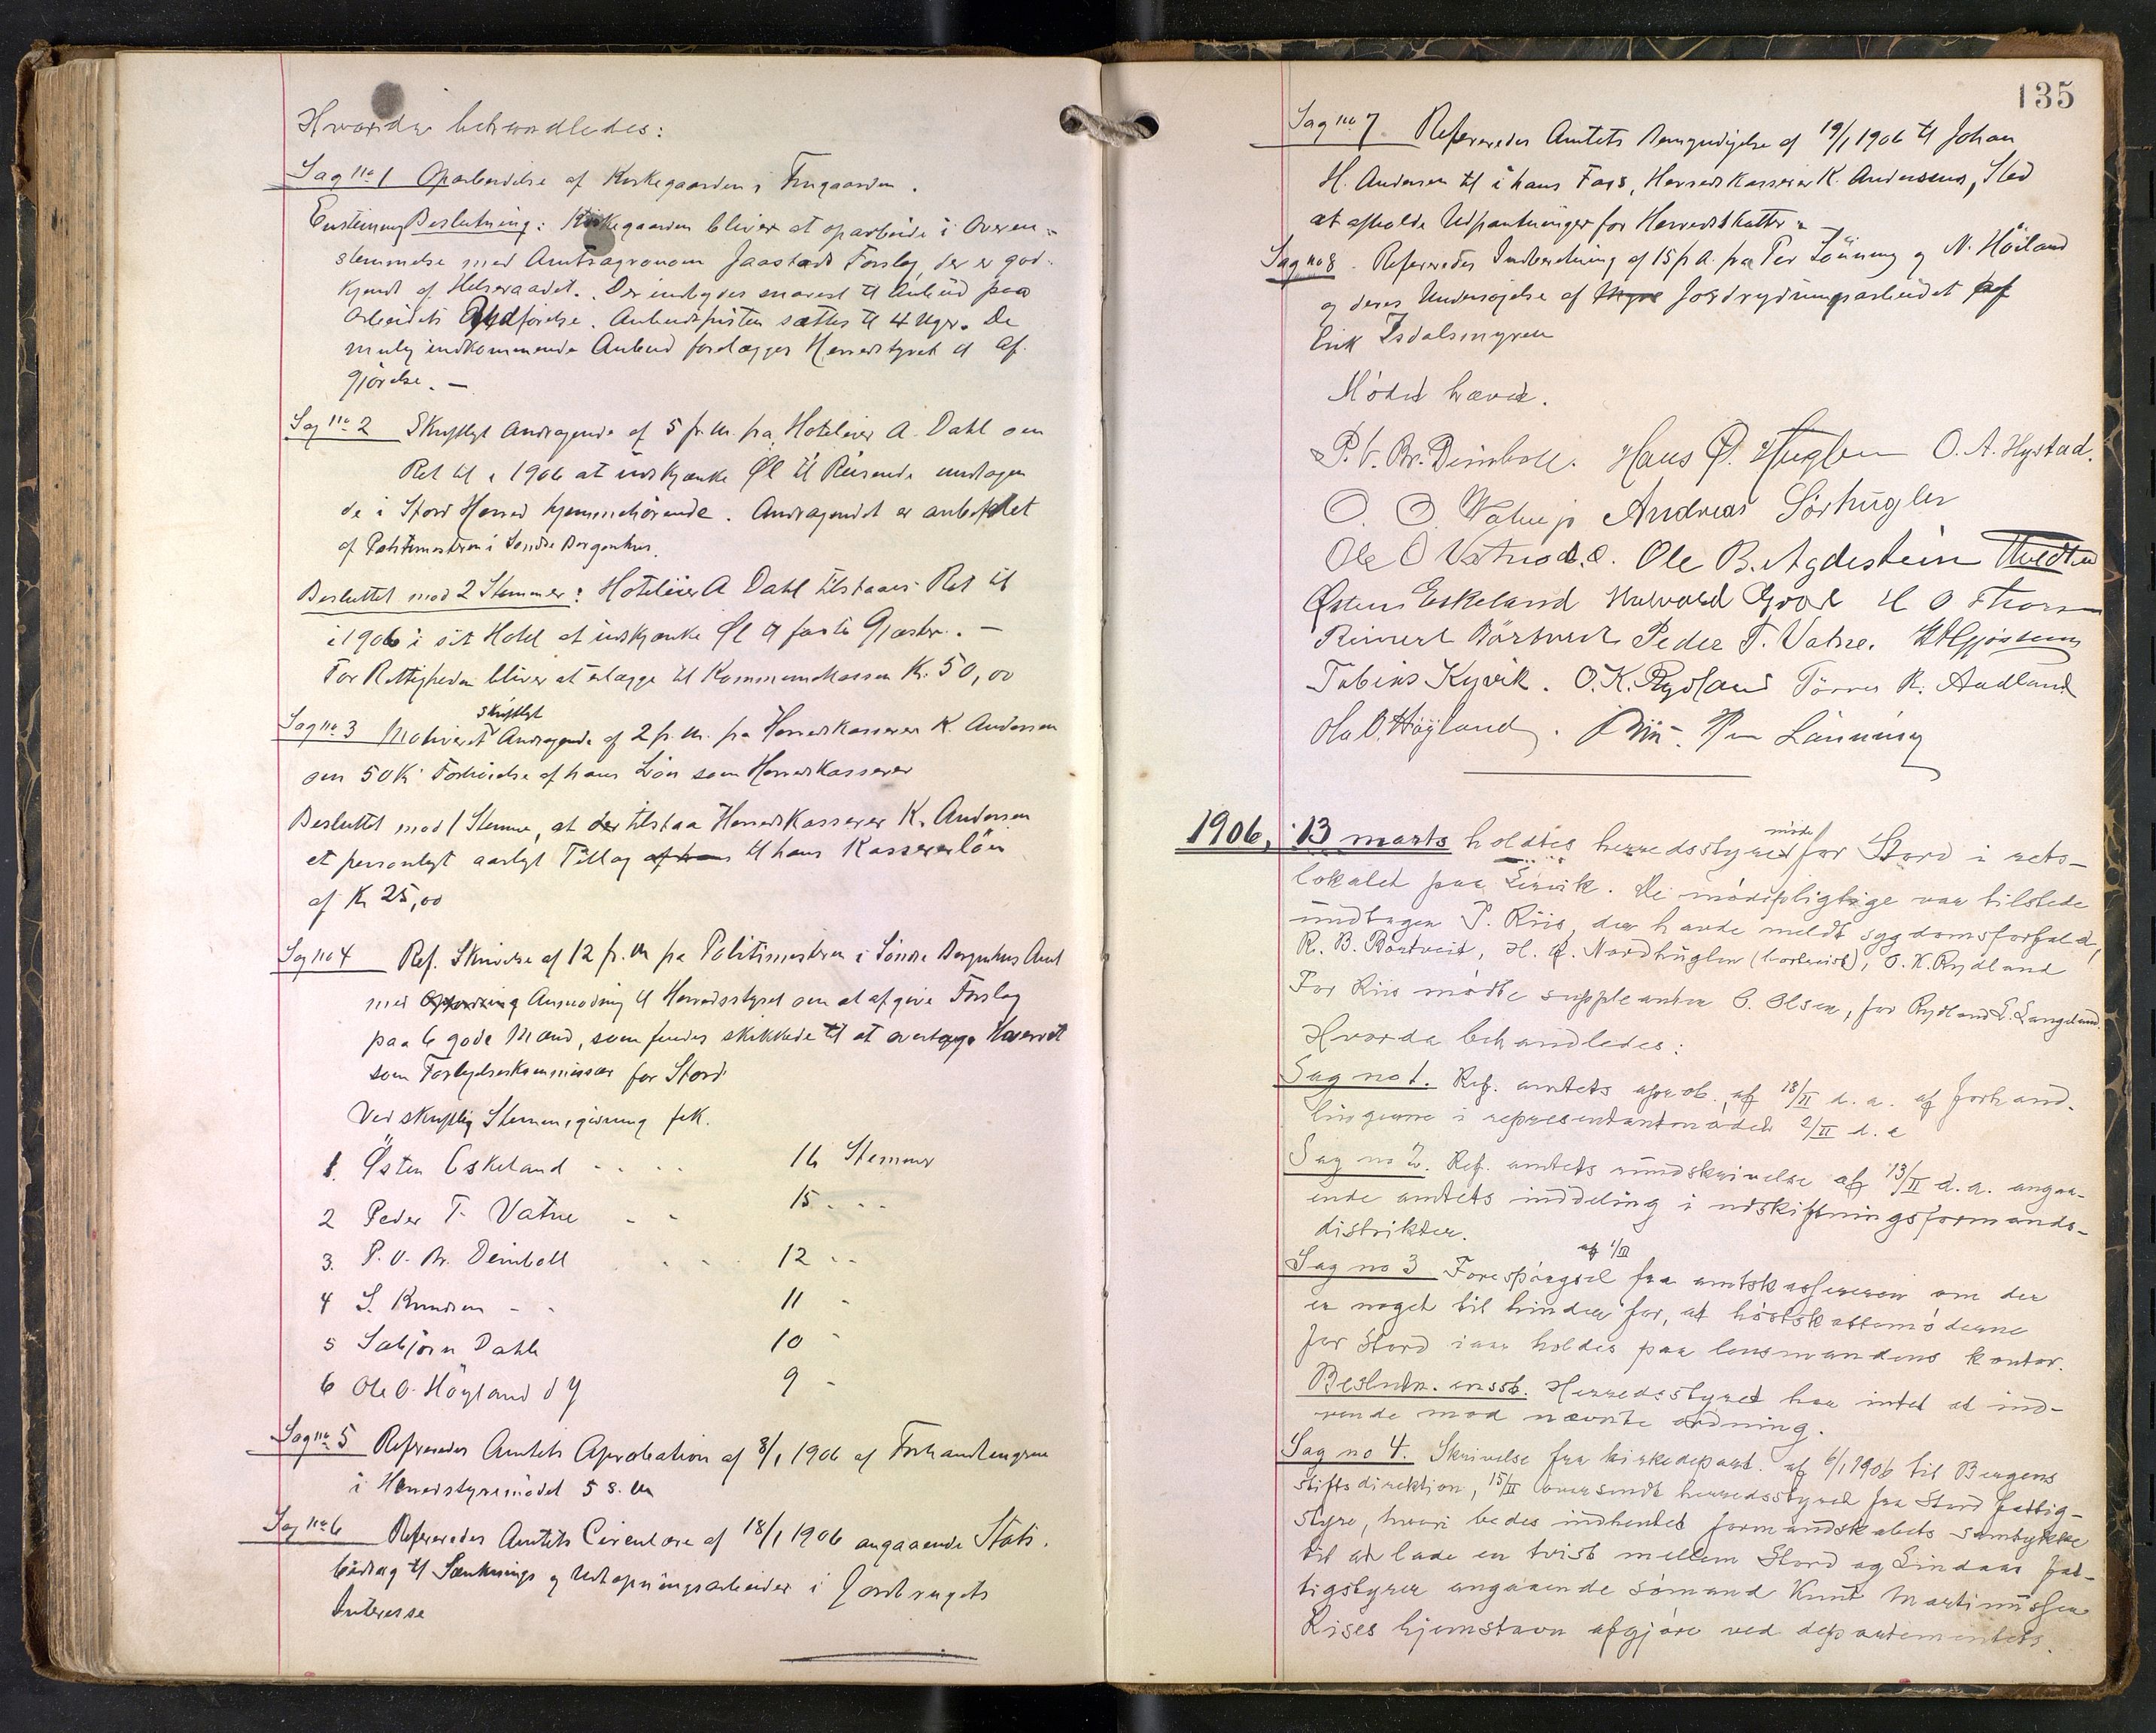 Hvorda behandledes:
Sag no 1 Oparbeidelse af Kirkegaarden i Frugaarden.
Enstemmig Beslutning: Kirkegaarden bliver at oparbeide i Overen-
stemmelse med Amtsagronom Jaastads Forslag, der er god-
kjendt af Helseraadet. Der indbydes snarest til Anbud paa
Arbeidets Udførelse. Anbudsfristen sættes til 4 Uger. De
mulig indkommende Anbud forelægges Herredstyret til Af-
gjørelse. —
Sag no 2 Skriftligt Andragende af 5 f. M. fra Hoteleier A. Dahl om
Ret til i 1906 at udskjænke Øl til Reisende undtagen
de i Stord Herred hjemmehørende. Andragendet er anbefalet
af Politimesteren i Søndre Bergenhus.
Besluttet mod 2 Stemmer: Hoteleier A Dahl tilstaaes Ret til
i 1906 i sit Hotel at udskjænke Øl til faste Gjæster. —
For Rettigheden bliver at erlægge til Kommunekassen Kr. 50,00
Sag no 3 Motiveret skriftligt Andragende af 2 f. M. fra Herredskasserer K. Andersen
om 50 Kr Forhøielse af hans Løn som Herredskasserer
Besluttet mod 1 Stemme, at der tilstaa Herredskasserer K. Andersen
et personligt aarligt Tillæg af hans til hans Kassererløn
af Kr 25,00
Sag no 4 Ref. Skrivelse af 12 f. M fra Politimesteren i Søndre Bergenhus Amt
med Opfordring Anmodning til Herredsstyret om at afgive Forslag
paa 6 gode Mænd, som findes skikkede til at overtage Hvervet
som Forligelseskommissær for Stord
Ved skriftlig Stemmegivning fik.
1. Østen Eskeland - - - - 16 Stemmer
2 Peder T. Vatne - - 15 - - -
3. P. V. Br. Deinboll - - 12 - -
4 S. Knudsen - - 11 -
5 Sæbjørn Dahle 10 -
6 Ole O. Høyland d Y 9 -
Sag no 5 Refereredes Amtets Aprobation af 8/1 1906 af Forhandlingerne
i Herredstyremødet 5 s. M
Sag no 6 Refereredes Amtets Circulære af 18/1 1906 angaaende Stats-
bidrag til Sænknings og Udtapningsarbeider i Jordbrugets
Interesse
135
Sag no 7 Refereredes Amtets Bemyndigelse af 19/1 1906 til Johan
H. Andersen til i hans Fars, Herredskasserer K. Andersens, Sted
at afholde Udpantninger for Herredsskatter.
Sag no 8. Refereredes Indberetning af 15 f. A. fra Per Lønning og N. Høiland
og deres Undersøgelse af Myre Jordrydningsarbeidet af
Erik Isdalsmyren
Mødet hævet.
P. V. Br. Deinboll. Hans Ø. Huglen O. A. Hystad.
O. O. Vatne jr Andreas Sørhugler
Ole O Vatne d.e. Ole B. Agdestein
Østen Eskeland Halvard H O Thorsen
Reinert Børtveit Peder T. Vatne.
Tobias Kyvik. O. K. Rydland Tørres K. Aadland
Ole O. Høyland. P Riis. Per Lønning
1906, 13 marts holdtes herredsstyremøde for Stord i rets-
lokalet paa Lervik. De mødepligtige var tilstede
undtagen P. Riis, der havde meldt sygdomsforfald,
R. B. Børtveit, H. Ø. Nordhuglen (bortreist), O. K. Rydland
For Riis mødte suppleanten C. Olsen, for Rydland L. Langeland.
Hvorda behandledes:
Sag no 1. Ref. amtets aprob. af 18/II d. a. af forhand-
lingerne i representantmødet 2/II d. a
Sag no 2. Ref. amtets rundskrivelse af 13/II d. a. angaa-
ende amtets inddeling i udskiftningsformands-
distrikter.
Sag no 3 Forespørgsel af 1/III fra amtskassereren om der
er noget til hinder for, at høstskattemøderne
for Stord iaar holdes paa lensmandens kontor.
Beslutn. enst. Herredsstyret har intet at ind-
vende mod nævnte ordning.
Sag no 4. Skrivelse fra kirkedepart. af 6/1 1906 til Bergens
stiftsdirektion, 15/II oversendt herredsstyret fra Stord fattig-
styre, hvori bedes indhentet formandskabets samtykke
til at lade en tvist mellem Stord og Lindaas fat-
tigstyrer angaaende sømand Knut Martinussen
Rises hjemstavn afgjøre ved departementets